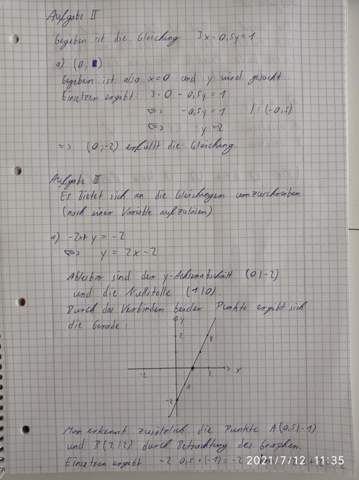 Aufgabe II
Gegeben ist die Gleichung 3x - 0,5y = 1
a) (0, )
Gegeben ist also x=0 und y wird gesucht.
Einsetzen ergibt 3·0 - 0,5y = 1
⇔ -0,5y = 1 |:(-0,5)
⇔ y = -2
=> (0,-2) erfüllt die Gleichung
Aufgabe III
Es bietet sich an die Gleichungen umzuschreiben
(nach einer Variable aufzulösen)
a) -2x + y = -2
⇔ y = 2x - 2
Ablesbar sind den y-Achsenabschnitt (0|-2)
und die Nullstelle (1|0)
Durch das Verbinden beider Punkte ergibt sich
die Gerade:
y
2
-2
2
x
-2
Man erkennt zusätzlich die Punkte A(0,5|-1)
und B(2|2) durch Betrachtung des Graphen.
Einsetzen ergibt -2·0,5 + (-1) = -2
2021/7/12 11:35